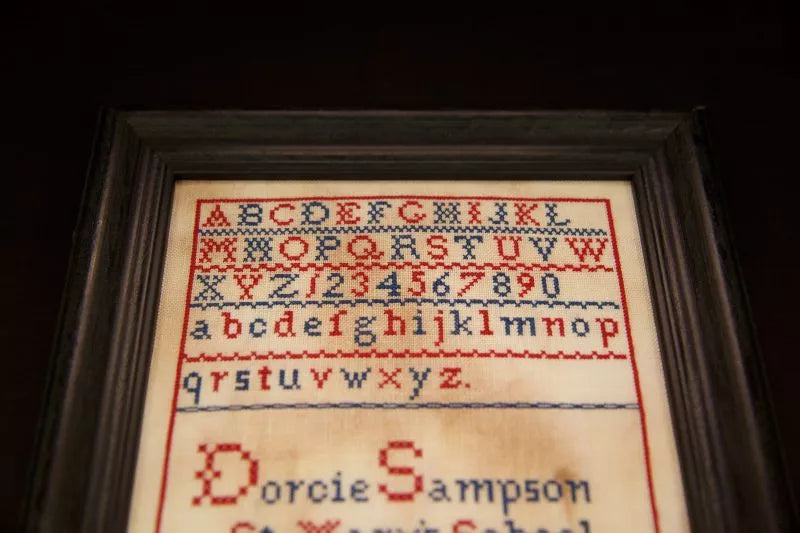 ABCDEFGHIJKL
MNOPQRSTUVW
XYZ1234567890
abcdefghijklmnop
qrstuvwxyz.
Dorcie Sampson
St. Mary's School